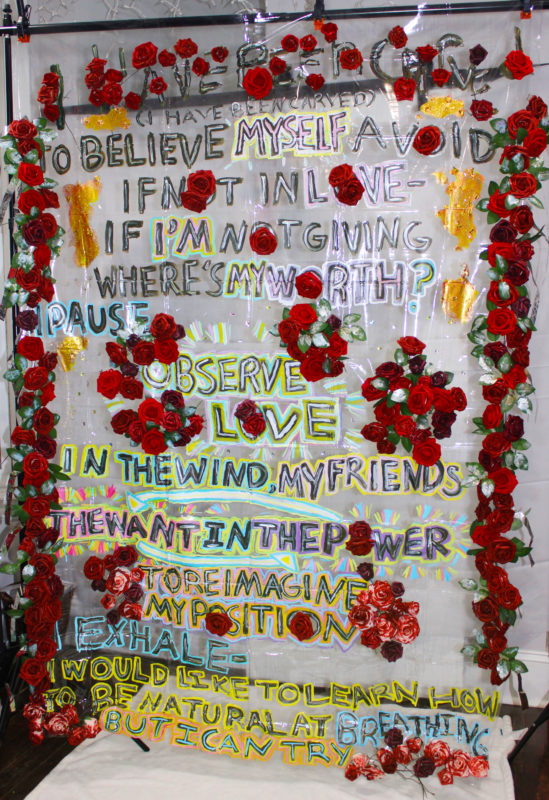 I HAVE BEEN CARVED
(I HAVE BEEN CARVED)
TO BELIEVE MYSELF A VOID
IF NOT IN LOVE-
IF I'M NOT GIVING
WHERE'S MY WORTH?
I PAUSE
OBSERVE
LOVE
IN THE WIND, MY FRIENDS
THE WANT IN THE POWER
TO REIMAGINE
MY POSITION
I EXHALE-
I WOULD LIKE TO LEARN HOW
TO BE NATURAL AT BREATHING
BUT I CAN TRY